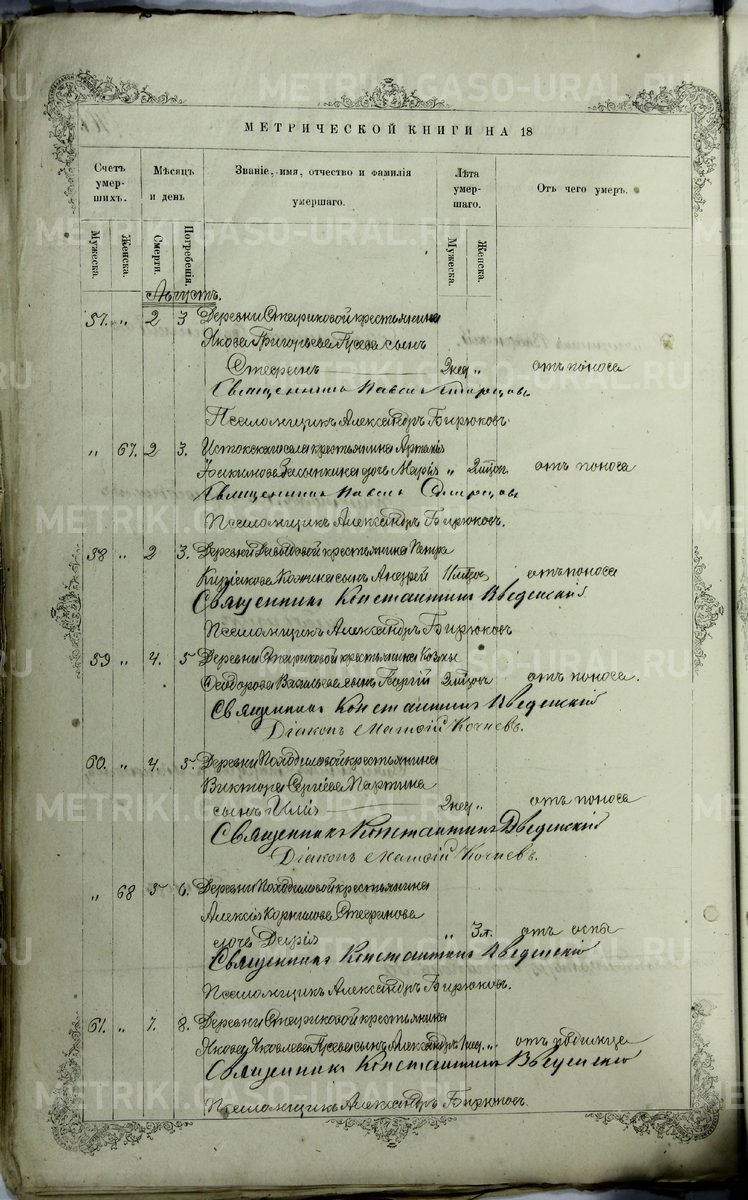 МЕТРИЧЕСКОЙ КНИГИ НА 18
Счетъ умер-шихъ.
Мѣсяцъ и день
Званіе, имя, отчество и фамилія умершаго.
Лѣта умер-шаго.
Отъ чего умеръ.
Мужеска. Женска. Смерти. Погребенія. Мужеска. Женска.
Августъ.
57. „ 2 3 Деревни Стариковой крестьянина
Якова Григорьева сынъ
Стефанъ 2 нед „ отъ поноса
Священникъ Павелъ
Псаломщикъ Александръ Бирюковъ.
„ 67. 2 3. Истокскаго села крестьянина
дочь Марія „ отъ поноса
Священникъ Павелъ
Псаломщикъ Александръ Бирюковъ.
58 „ 2 3. Деревни крестьянина Петра
сынъ Андрей отъ поноса
Священникъ Константинъ Введенскій
Псаломщикъ Александръ Бирюковъ
59 „ 4. 5 Деревни Стариковой крестьянина Козмы
Ѳеодорова Васильева сынъ Георгій отъ поноса.
Священникъ Константинъ Введенскій
Діаконъ Матѳій Кочневъ.
60. „ 4. 5. Деревни Походиловой крестьянина
Виктора Сергіева
сынъ Илія 2 нед „ отъ поноса
Священникъ Константинъ Введенскій
Діаконъ Матѳій Кочневъ.
„ 68 5 6. Деревни Походиловой крестьянина
Алексія Корнилова Стефанова
дочь Дарія „ 3 л. отъ оспы
Священникъ Константинъ Введенскій
Псаломщикъ Александръ Бирюковъ.
61. „ 7. 8. Деревни Стариковой крестьянина
Якова Яковлева сынъ Александръ 1 нед. „ отъ родимца
Священникъ Константинъ Введенскій
Псаломщикъ Александръ Бирюковъ.
METRIKI.GASO-URAL.RU